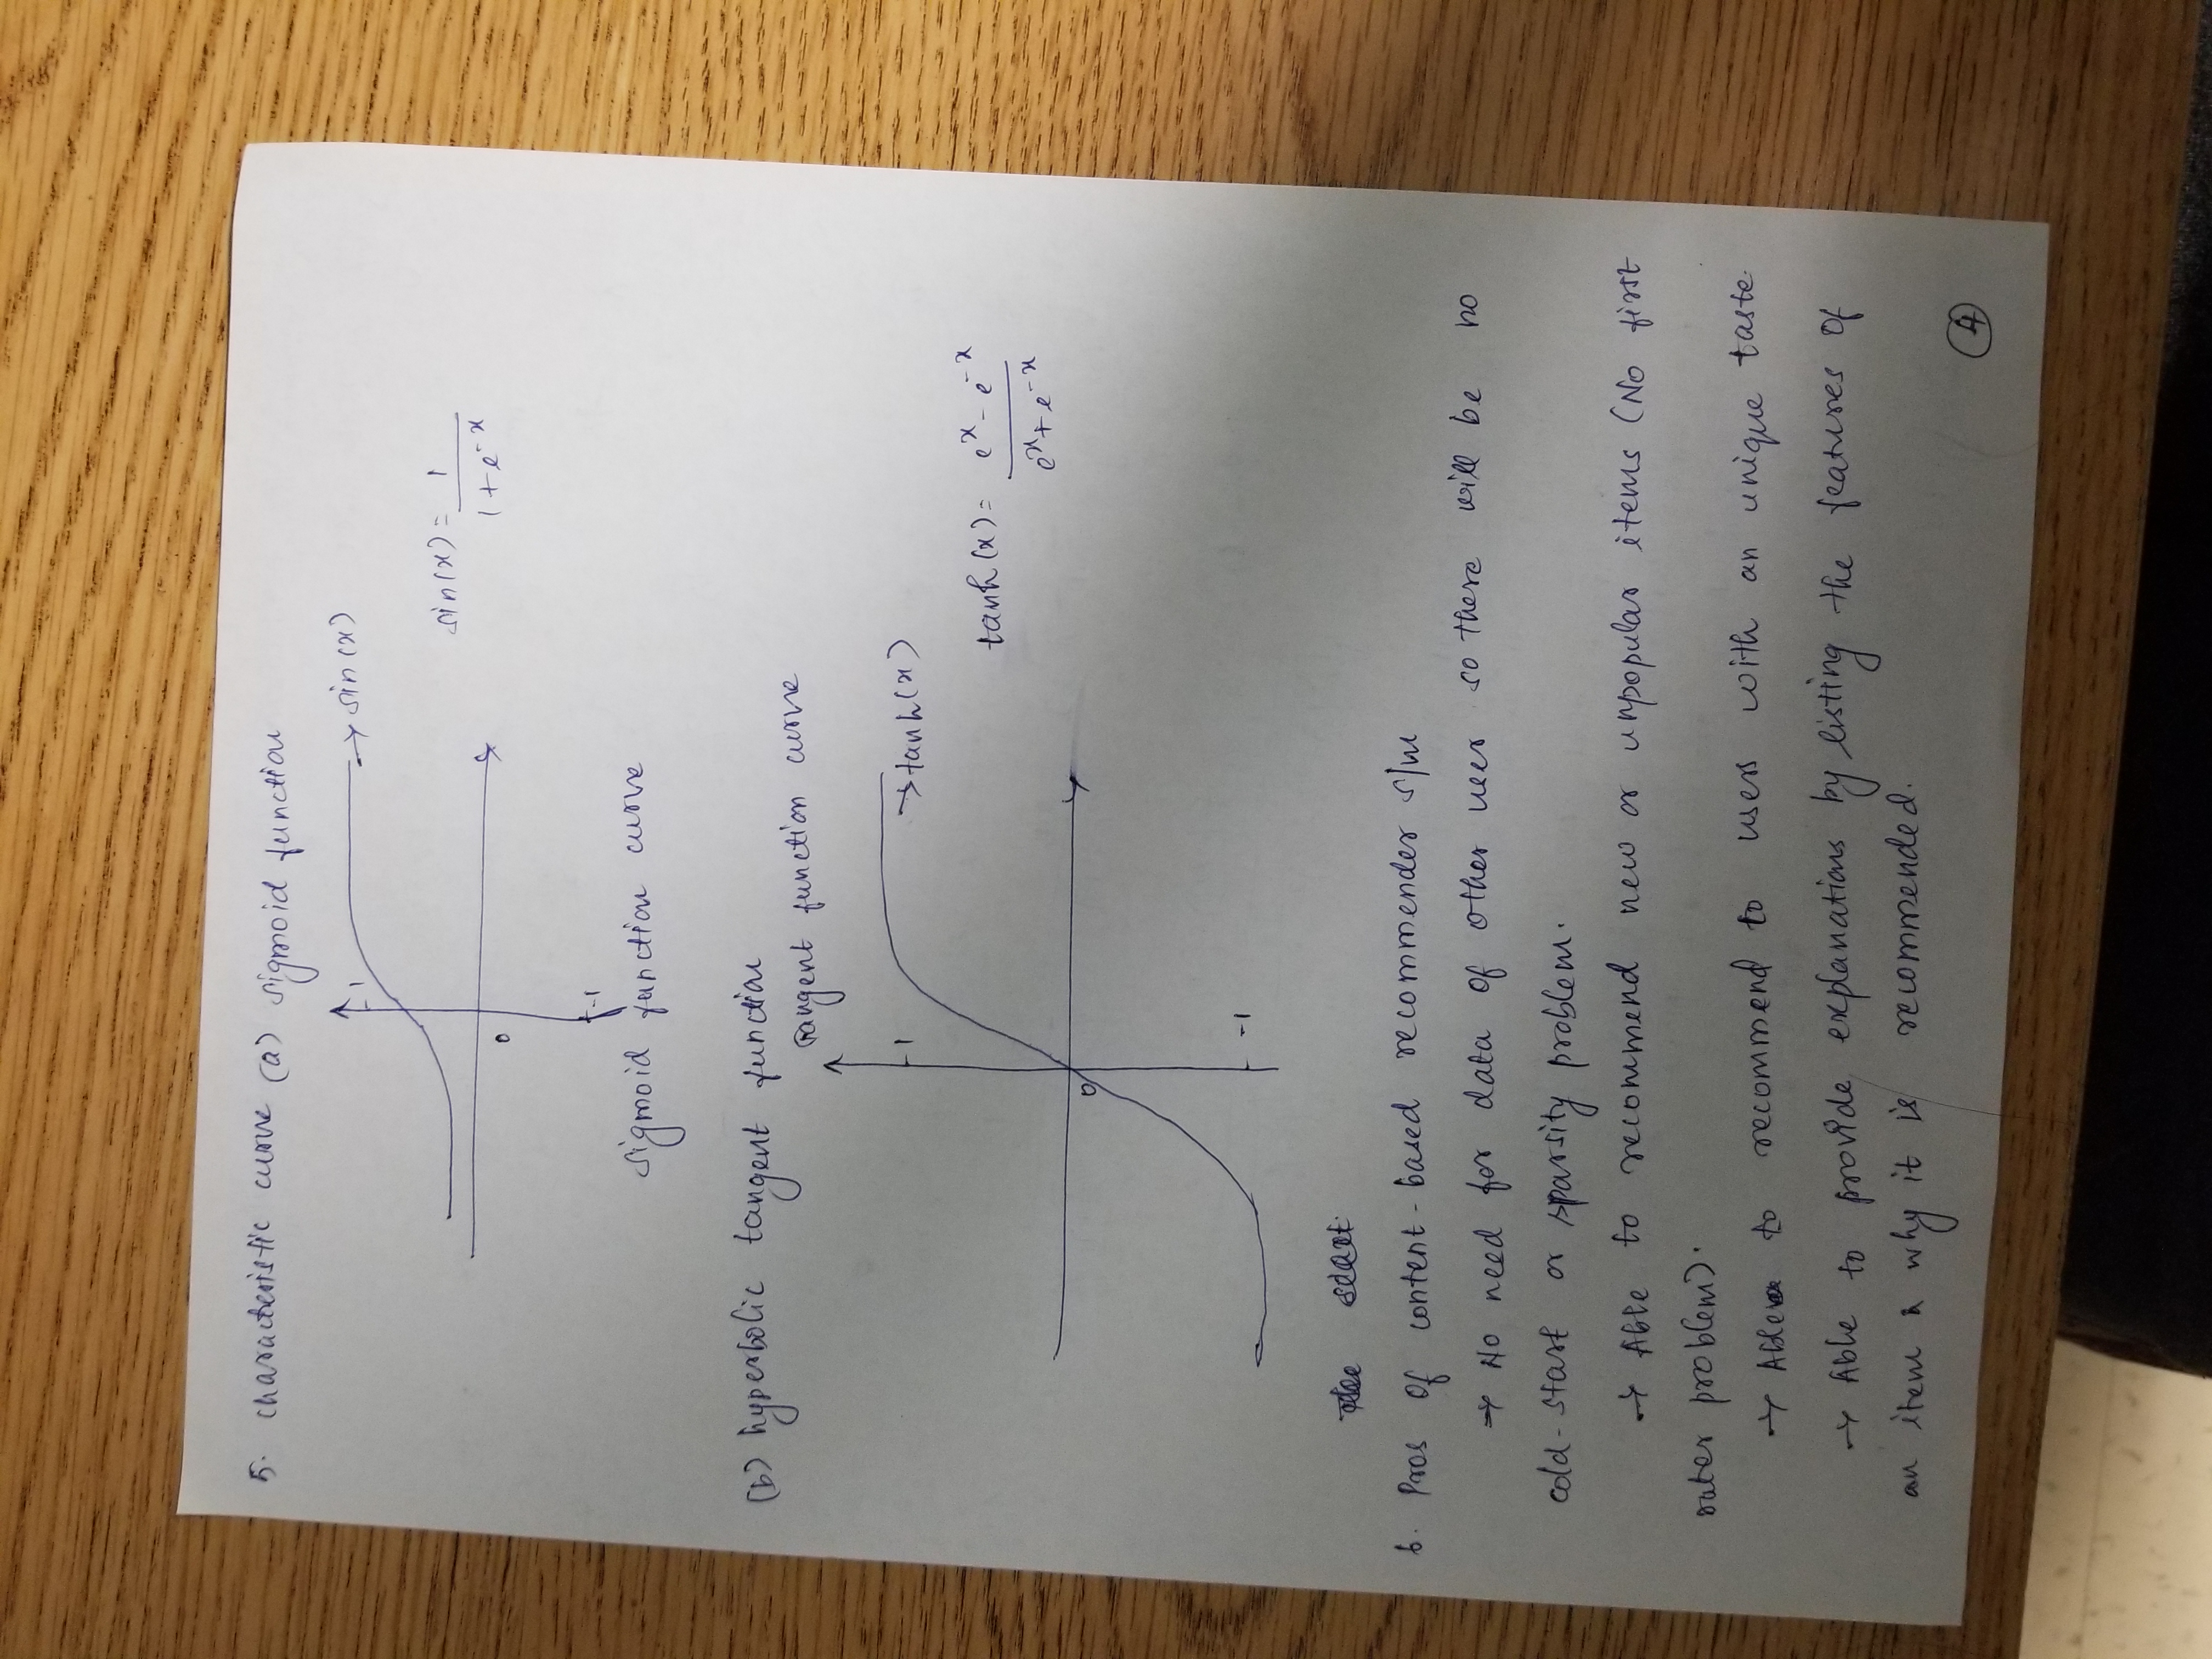 5. characteristic curve (a) sigmoid function
1
→ sin(x)
sin(x) = 1
1 + e^-x
0
-1
sigmoid function curve
(b) hyperbolic tangent function
Tangent function curve
1
→ tanh(x)
tanh(x) = e^x - e^-x
e^x + e^-x
0
-1
6. Pros of content-based recommender s/m
→ No need for data of other user so there will be no
cold-start or sparsity problem.
→ Able to recommend new or unpopular items (No first
rater problem).
→ Able to recommend to users with an unique taste.
→ Able to provide explanations by listing the features of
an item & why it is recommended.
4